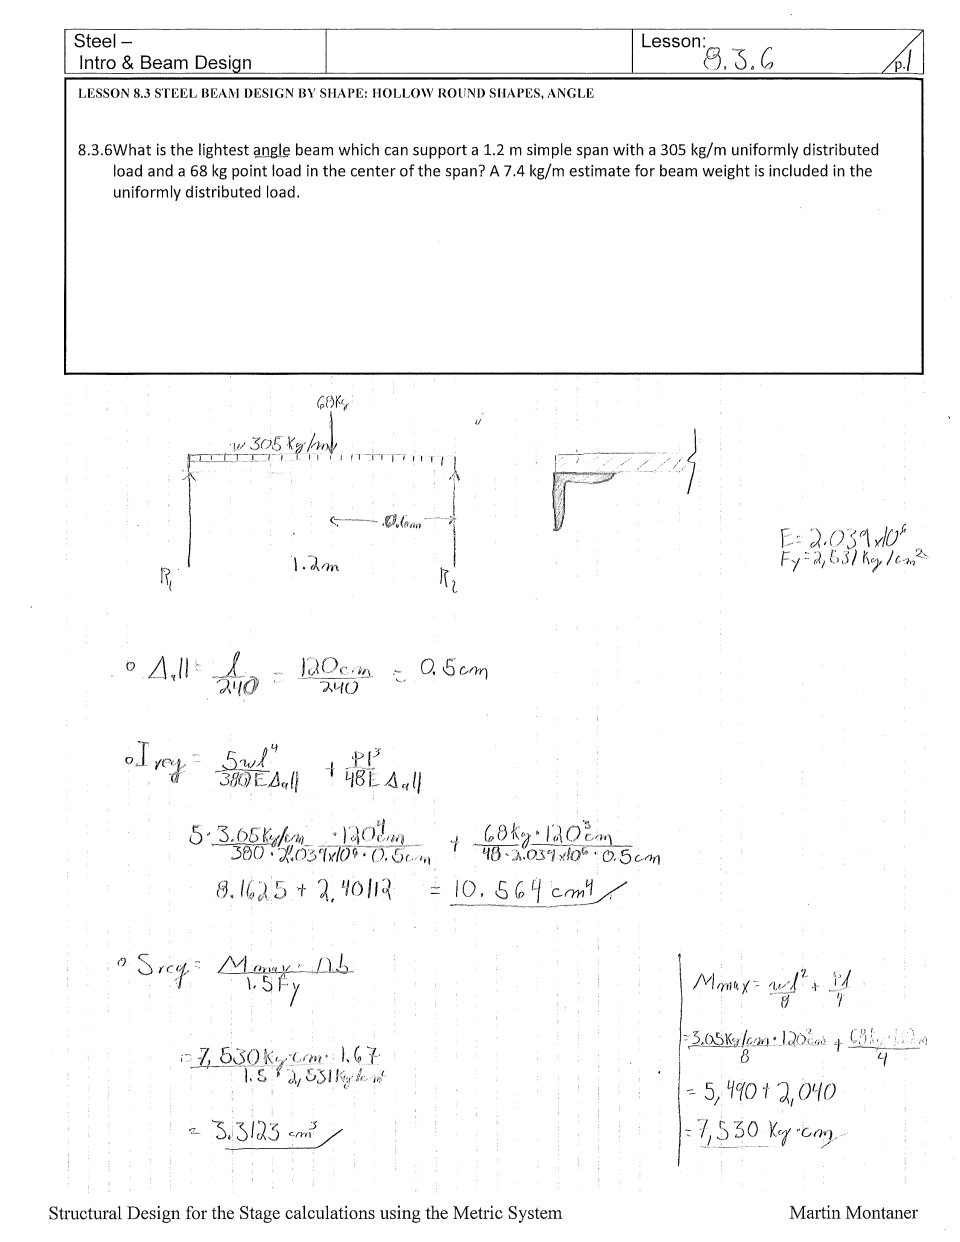 Steel –
Intro & Beam Design
Lesson: 8.3.6
p.1
LESSON 8.3 STEEL BEAM DESIGN BY SHAPE: HOLLOW ROUND SHAPES, ANGLE
8.3.6What is the lightest angle beam which can support a 1.2 m simple span with a 305 kg/m uniformly distributed
load and a 68 kg point load in the center of the span? A 7.4 kg/m estimate for beam weight is included in the
uniformly distributed load.
68Kg
w 305 Kg/m
0.6m
1.2m
R1
R2
E= 2.039x10⁶
Fy=2,531 Kg/cm²
Δall = l/240 = 120cm/240 = 0.5cm
Ireq = 5wl⁴/380EΔall + Pl³/48EΔall
5·3.05Kg/cm·120⁴cm/380·2.039x10⁶·0.5cm + 68kg·120³cm/48·2.039x10⁶·0.5cm
8.1625 + 2.40112 = 10.564 cm⁴
Sreq = Mmax·Ωb/1.5Fy
= 7,530Kg·cm·1.67/1.5·2,531Kg/cm²
= 3.3123 cm³
Mmax = wl²/8 + Pl/4
=3.05Kg/cm·120²cm/8 + 68 /4
= 5,490 + 2,040
= 7,530 Kg·cm
Structural Design for the Stage calculations using the Metric System
Martin Montaner